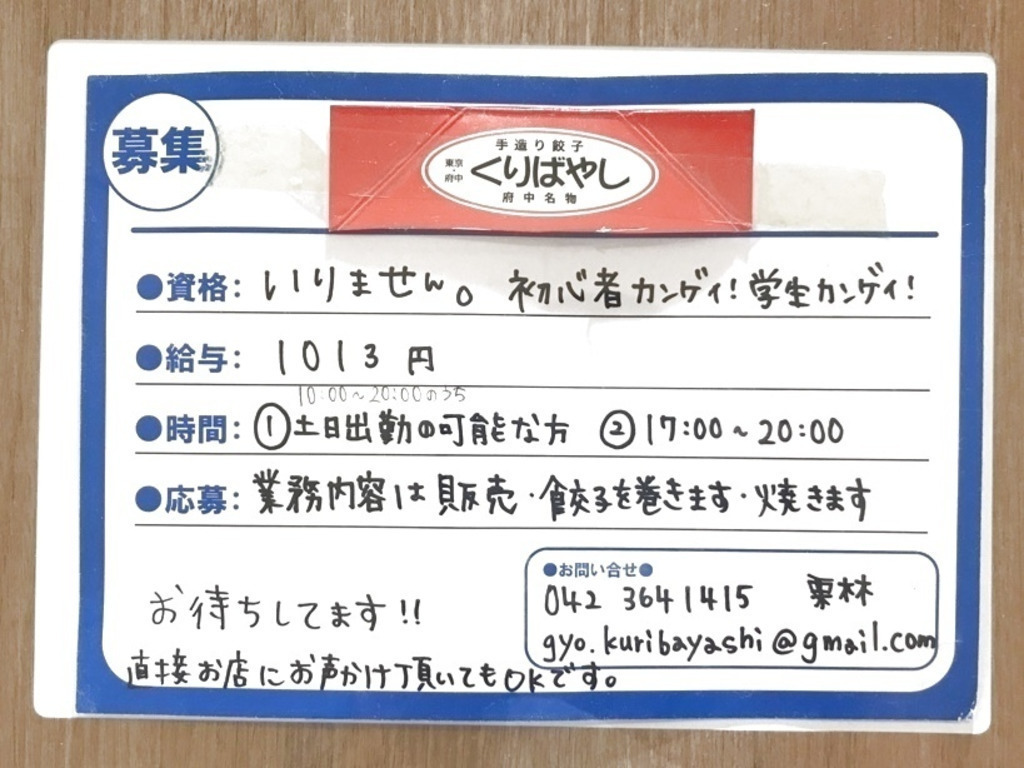 募集
手造り餃子
東京・府中
くりばやし
府中名物
●資格： いりません。 初心者カンゲイ！学生カンゲイ！
●給与： 1013 円
10:00～20:00のうち
●時間： ①土日出勤の可能な方 ②17:00～20:00
●応募： 業務内容は販売・餃子を巻きます・焼きます
●お問い合せ●
042 3641415 栗林
gyo.kuribayashi@gmail.com
お待ちしてます!!
直接お店にお声かけ頂いてもOKです。